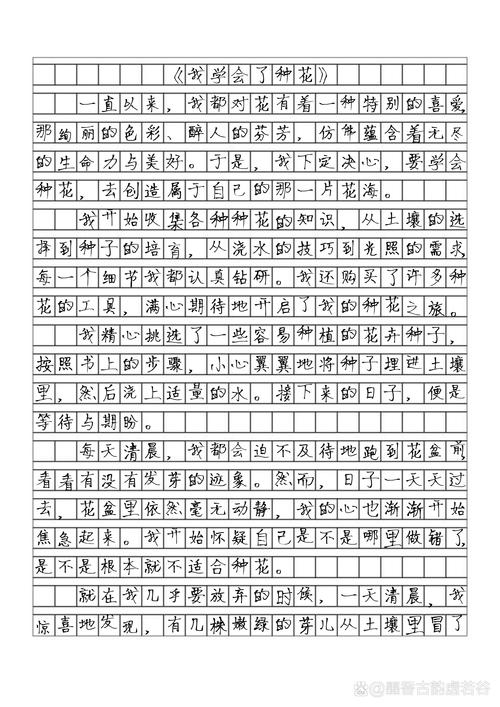 《我学会了种花》
一直以来，我都对花有着一种特别的喜爱，
那绚丽的色彩、醉人的芬芳，仿佛蕴含着无尽
的生命力与美好。于是，我下定决心，要学会
种花，去创造属于自己的那一片花海。
我开始收集各种种花的知识，从土壤的选
择到种子的培育，从浇水的技巧到光照的需求，
每一个细节我都认真钻研。我还购买了许多种
花的工具，满心期待地开启了我的种花之旅。
我精心挑选了一些容易种植的花卉种子，
按照书上的步骤，小心翼翼地将种子埋进土壤
里，然后浇上适量的水。接下来的日子，便是
等待与期盼。
每天清晨，我都会迫不及待地跑到花盆前，
看看有没有发芽的迹象。然而，日子一天天过
去，花盆里依然毫无动静，我的心也渐渐开始
焦急起来。我开始怀疑自己是不是哪里做错了，
是不是根本就不适合种花。
就在我几乎要放弃的时候，一天清晨，我
惊喜地发现，有几株嫩绿的芽儿从土壤里冒了